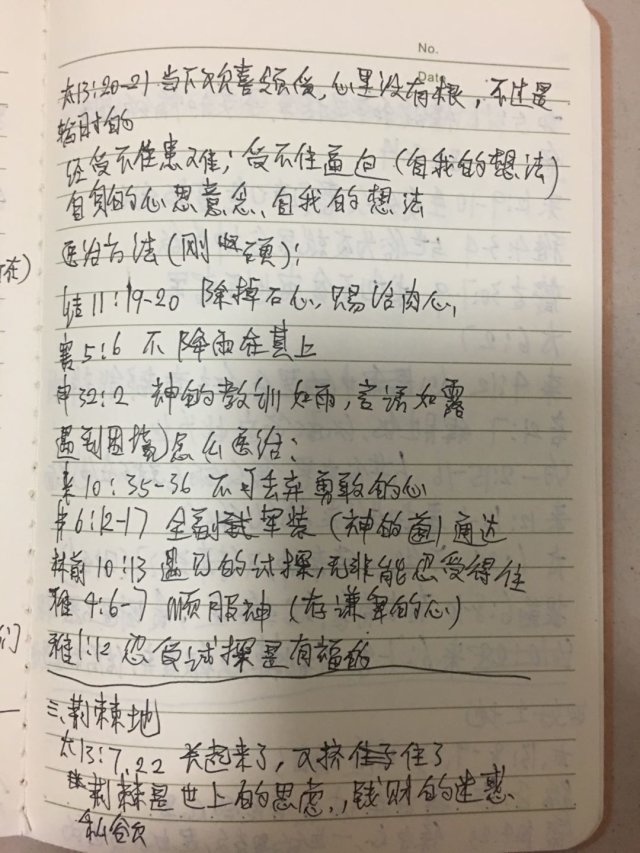 No.
Date
太13:20-21 当下欢喜领受,心里没有根,不过是
暂时的
经受不住患难;受不住逼迫(自我的想法)
自负的心思意念、自我的想法
医治方法(刚硬 顽):
结11:19-20 除掉石心,赐给肉心,
赛5:6 不降雨在其上
申32:2 神的教训如雨,言语如露
遇到困境)怎么医治:
来10:35-36 不可丢弃勇敢的心
弗6:12-17 全副 军装(神的 )通达
林前10:13 遇见的试探,无非能忍受得住
雅4:6-7 顺服神(存谦卑的心)
雅1:12 忍受试探是有福的
三.荆棘地
太13:7,22 长起来了,又挤住了
荆棘是世上的思虑,,钱财的迷惑
私
在)
们